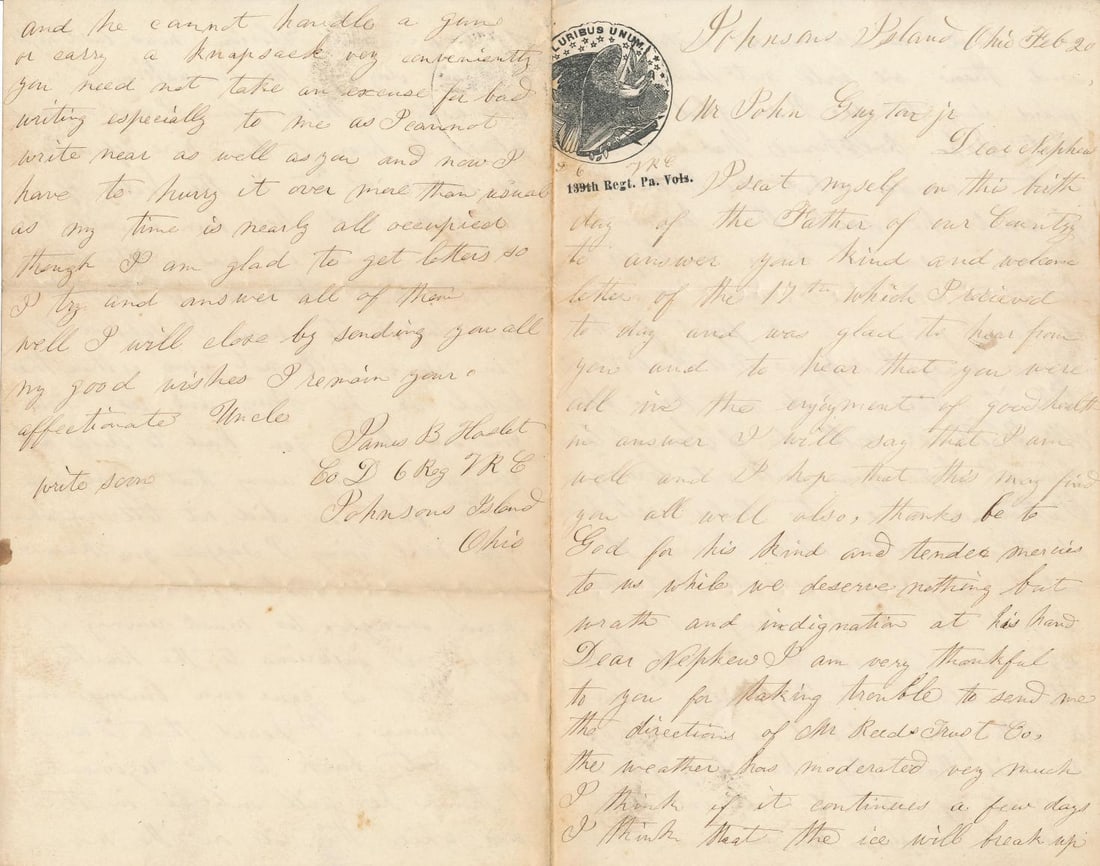 PLURIBUS UNUM
139th Regt. Pa. Vols.
6 VRC
Johnsons Island Ohio Feb 20
Mr John Guyton jr
Dear Nephew
I seat myself on this birth
day of the Father of our Country
to answer your kind and welcome
letter of the 17th which I recieved
to day and was glad to hear from
you and to hear that you were
all in the enjoyment of good health
in answer I will say that I am
well and I hope that this may find
you all well also, thanks be to
God for his kind and tender mercies
to us while we deserve nothing but
wrath and indignation at his hand
Dear Nephew I am very thankful
to you for taking trouble to send me
the directions of Mr Reeds Trust Co,
the weather has moderated very much
I think if it continues a few days
I think that the ice will break up
and he cannot handle a gun
or carry a knapsack very conveniently
you need not take an excuse for bad
writing especially to me as I cannot
write near as well as you and now I
have to hurry it over more than usual
as my time is nearly all occupied
though I am glad to get letters so
I try and answer all of them
well I will close by sending you all
my good wishes I remain your
affectionate Uncle
James B Haslet
Co D 6 Reg V R C
Johnsons Island
Ohio
write soon